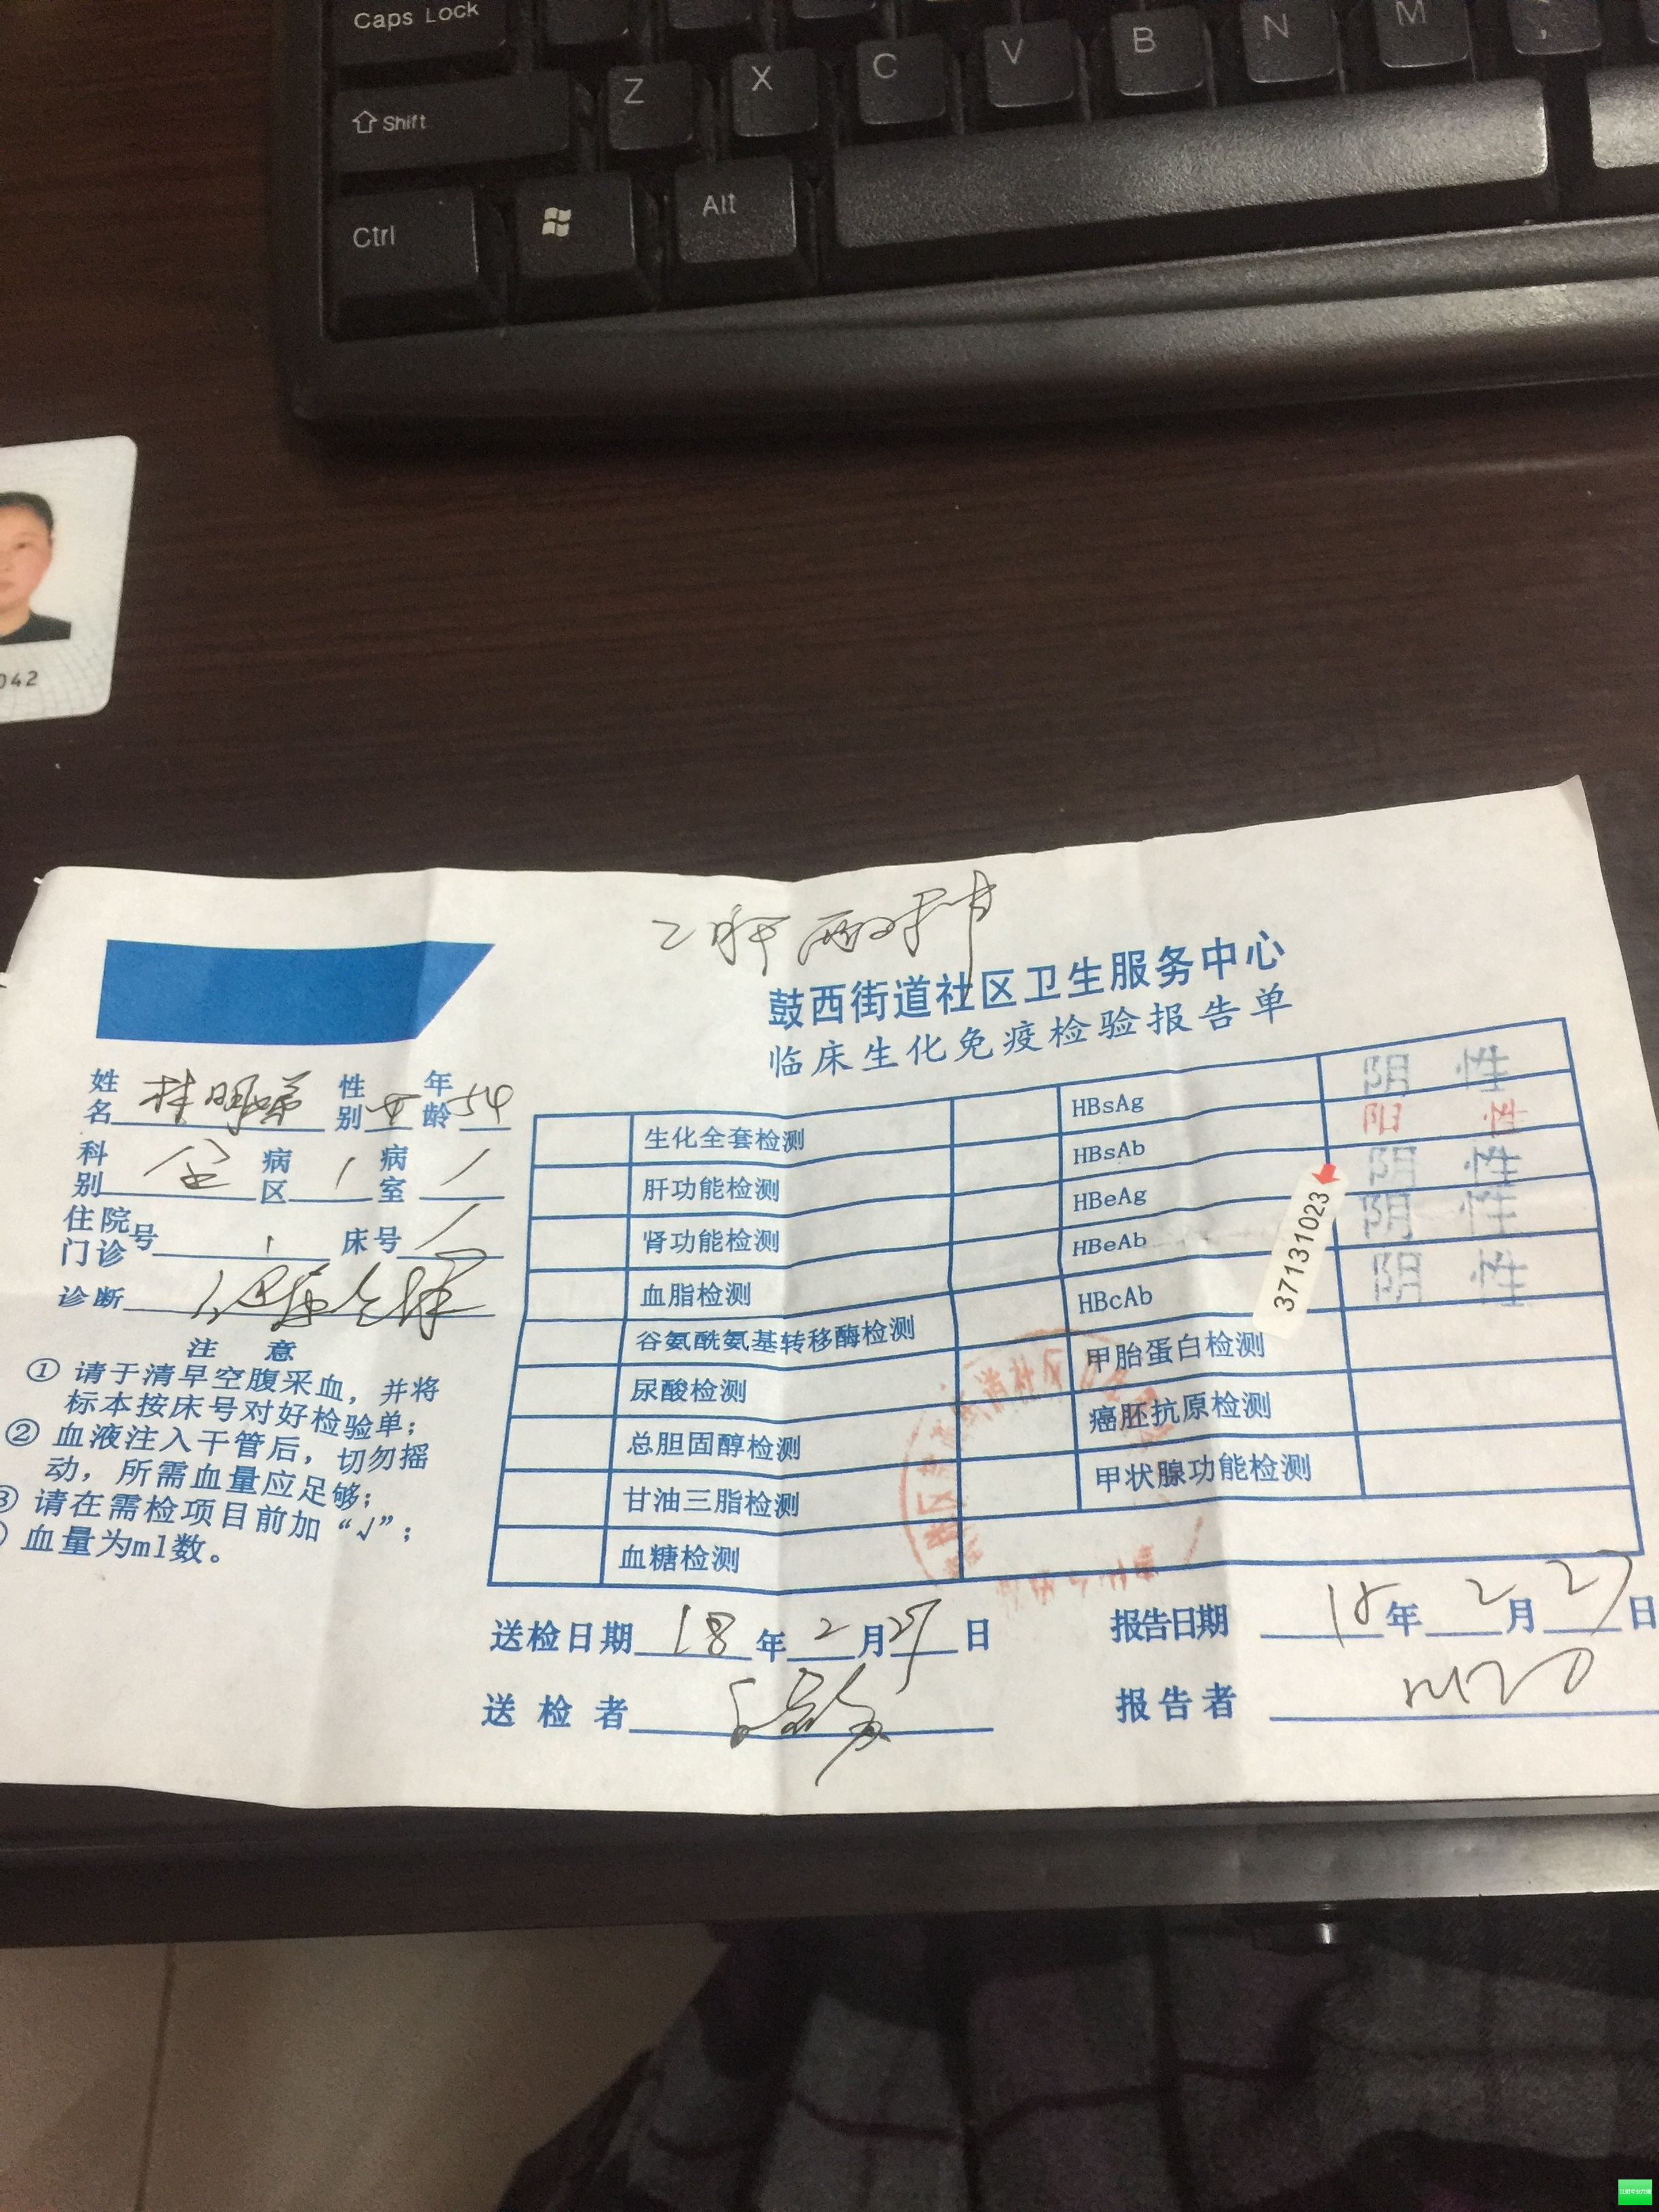 Caps Lock
Z X C V B N M ,
Shift
Ctrl Alt
042
乙肝两对半
鼓西街道社区卫生服务中心
临床生化免疫检验报告单
姓名 桂明 性别 女 年龄 54
科别 全 病区 / 病室 /
住院门诊号 / 床号 /
诊断
注 意
① 请于清早空腹采血，并将
标本按床号对好检验单；
② 血液注入干管后，切勿摇
动，所需血量应足够；
③ 请在需检项目前加“√”；
血量为ml数。
生化全套检测 HBsAg 阴 性
肝功能检测 HBsAb 阳 性
肾功能检测 HBeAg 阴 性
血脂检测 HBeAb 阴 性
谷氨酰氨基转移酶检测 HBcAb 阴 性
37131023
尿酸检测 甲胎蛋白检测
总胆固醇检测 癌胚抗原检测
甘油三脂检测 甲状腺功能检测
血糖检测
送检日期 18 年 2 月 27 日 报告日期 18 年 2 月 27 日
送 检 者 报 告 者